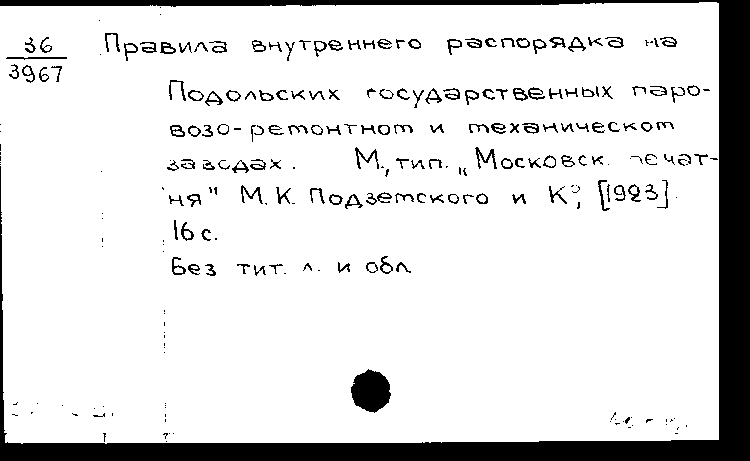 36
3967
Правила внутреннего распорядка на
Подольских государственных паро-
возо-ремонтном и механическом
заводах. М., тип. „Московск. печат-
ня" М.К. Подземского и К°, [1923].
16 с.
Без тит. л. и обл.